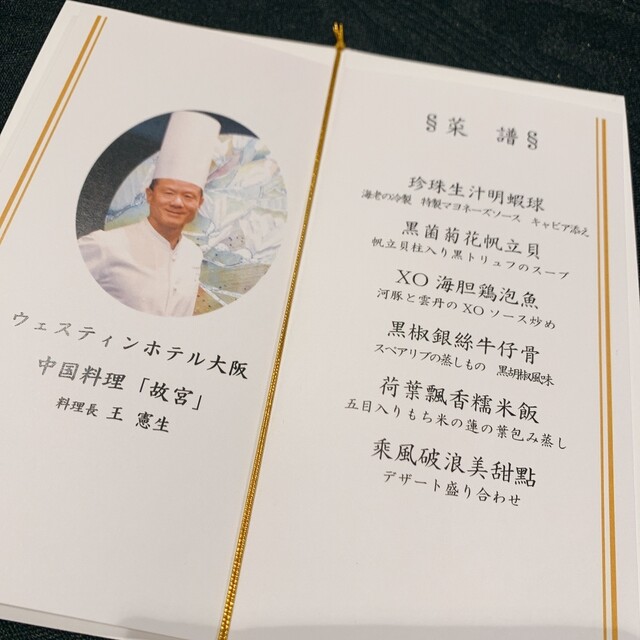 ウェスティンホテル大阪
中国料理「故宮」
料理長 王 憲生
§菜 譜§
珍珠生汁明蝦球
海老の冷製 特製マヨネーズソース キャビア添え
黒菌菊花帆立貝
帆立貝柱入り黒トリュフのスープ
XO 海胆鶏泡魚
河豚と雲丹の XO ソース炒め
黒椒銀絲牛仔骨
スペアリブの蒸しもの 黒胡椒風味
荷葉飄香糯米飯
五目入りもち米の蓮の葉包み蒸し
乘風破浪美甜點
デザート盛り合わせ